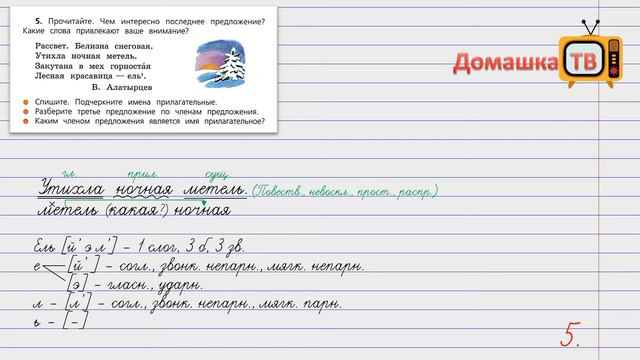 5. Прочитайте. Чем интересно последнее предложение?
Какие слова привлекают ваше внимание?
Рассвет. Белизна снеговая.
Утихла ночная метель.
Закутана в мех горноста́я
Лесная красавица — ель¹.
В. Алатырцев
Спишите. Подчеркните имена прилагательные.
Разберите третье предложение по членам предложения.
Каким членом предложения является имя прилагательное?
Домашка ТВ
гл. прил сущ
Утихла ночная метель. (Повеств., невоскл., прост., распр.)
метель (какая?) ночная
Ель [й' э л'] – 1 слог, 3 б, 3 зв.
е [й'] – согл., звонк. непарн., мягк. непарн.
[э] – гласн., ударн.
л – [л'] – согл., звонк. непарн., мягк. парн.
ь – [–]
5.